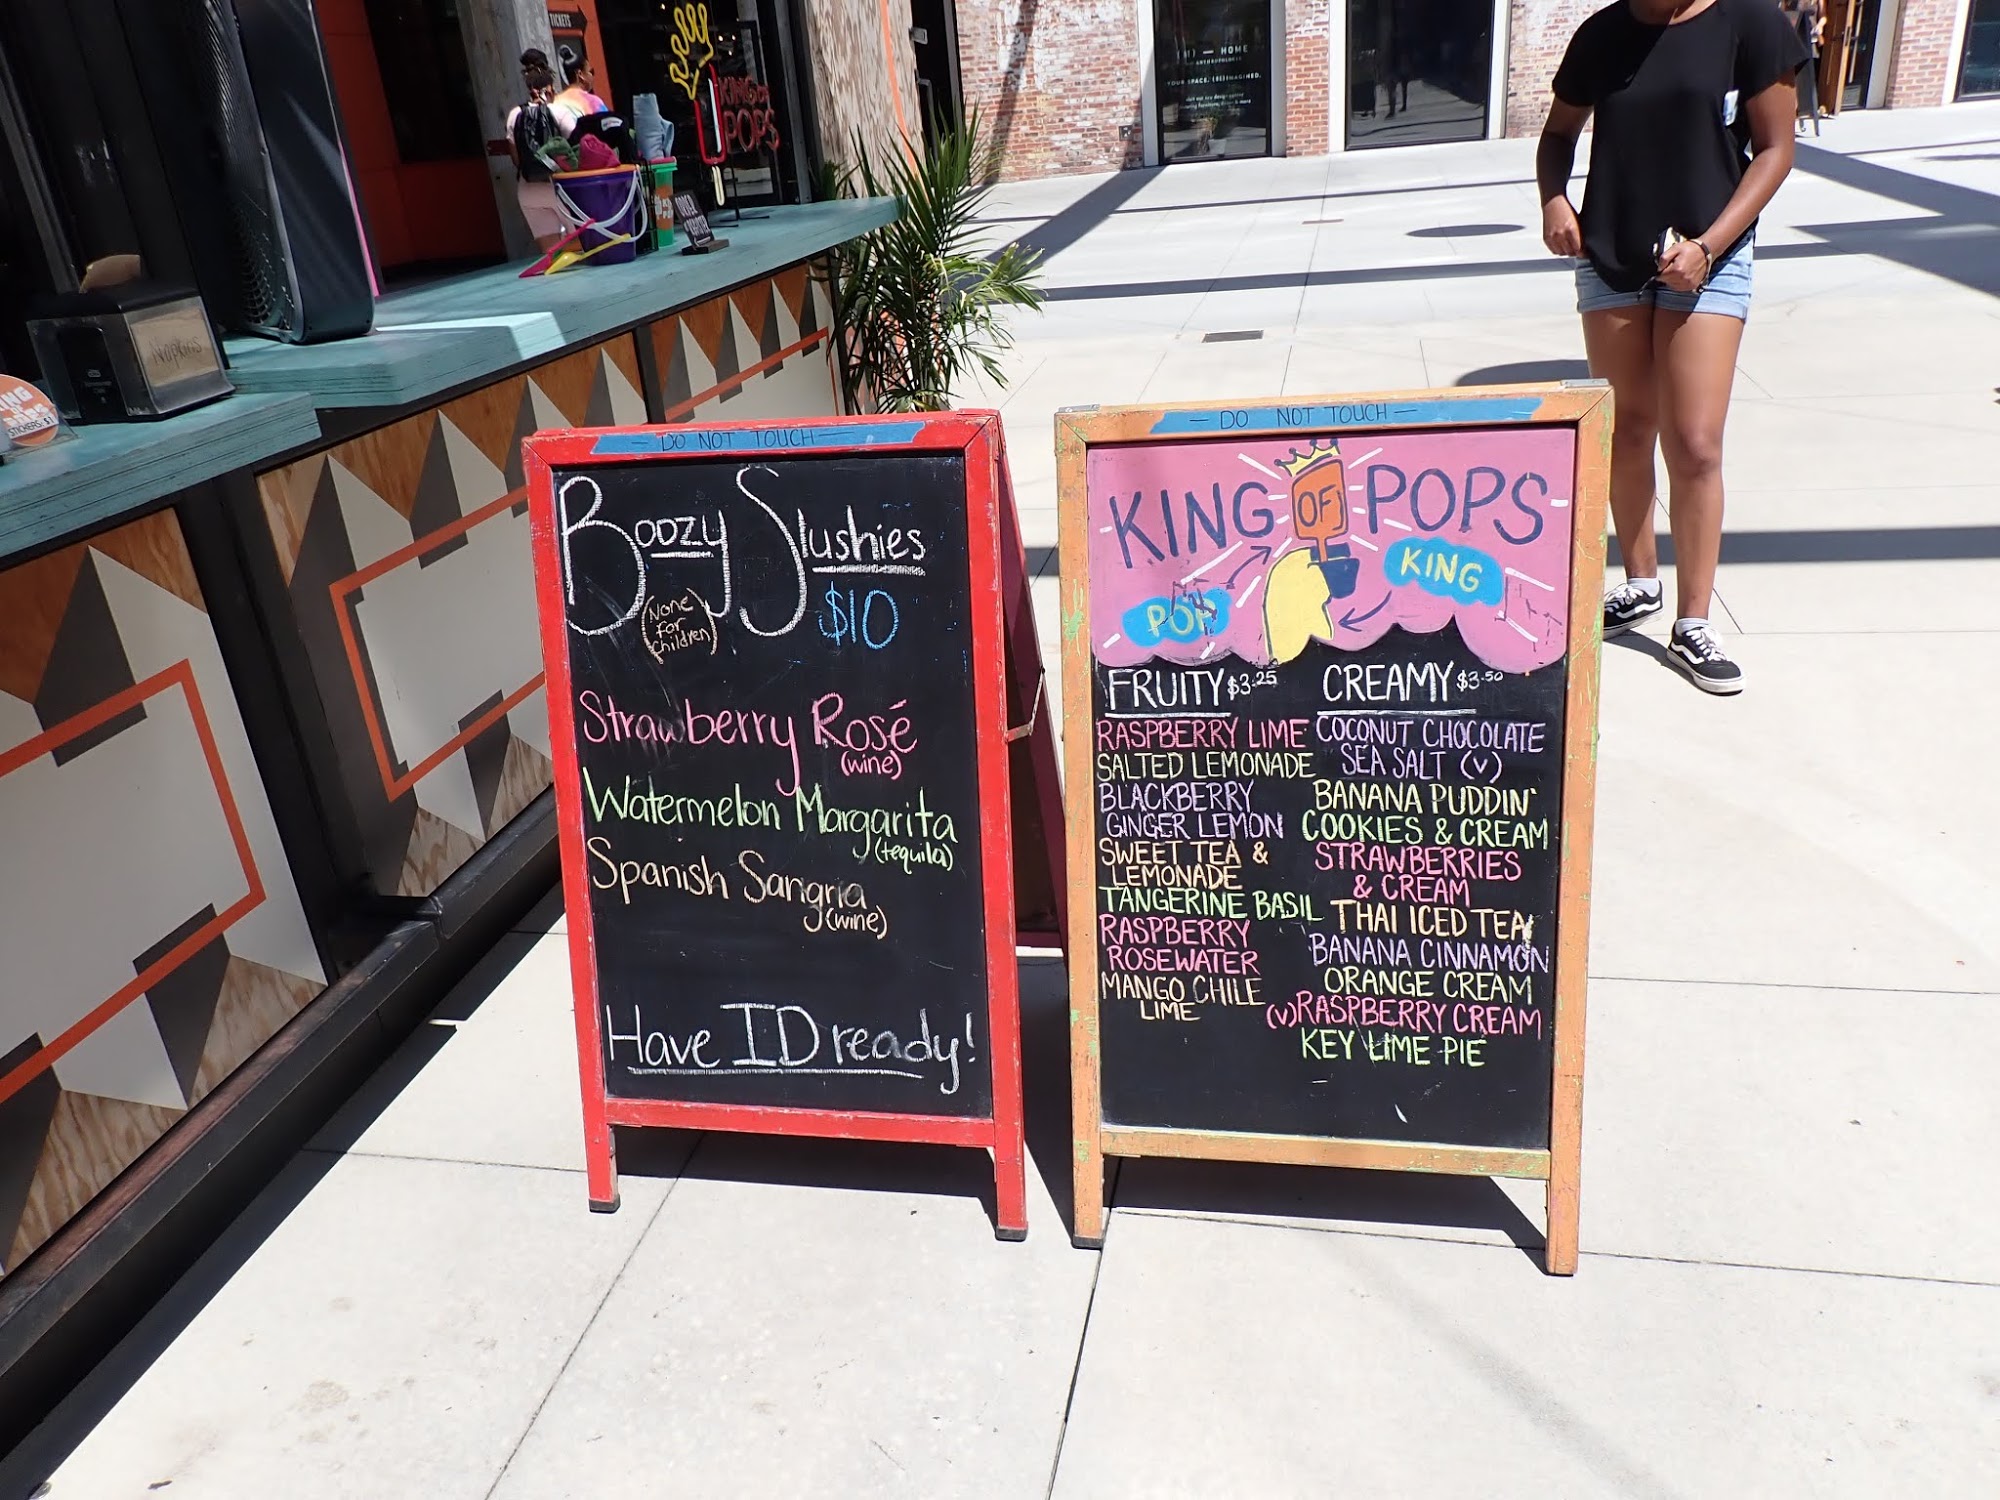 TICKETS
KING OF
POPS
Napkins
STICKERS: $1
HOME
YOUR SPACE, (RE)IMAGINED.
— DO NOT TOUCH —
Boozy Slushies
(None
for
children)
$10
Strawberry Rosé
(wine)
Watermelon Margarita
(tequila)
Spanish Sangria
(wine)
Have ID ready!
— DO NOT TOUCH —
KING OF POPS
KING
POP
FRUITY $3.25
RASPBERRY LIME
SALTED LEMONADE
BLACKBERRY
GINGER LEMON
SWEET TEA &
LEMONADE
TANGERINE BASIL
RASPBERRY
ROSEWATER
MANGO CHILE
LIME
CREAMY $3.50
COCONUT CHOCOLATE
SEA SALT (V)
BANANA PUDDIN'
COOKIES & CREAM
STRAWBERRIES
& CREAM
THAI ICED TEA
BANANA CINNAMON
ORANGE CREAM
(V) RASPBERRY CREAM
KEY LIME PIE